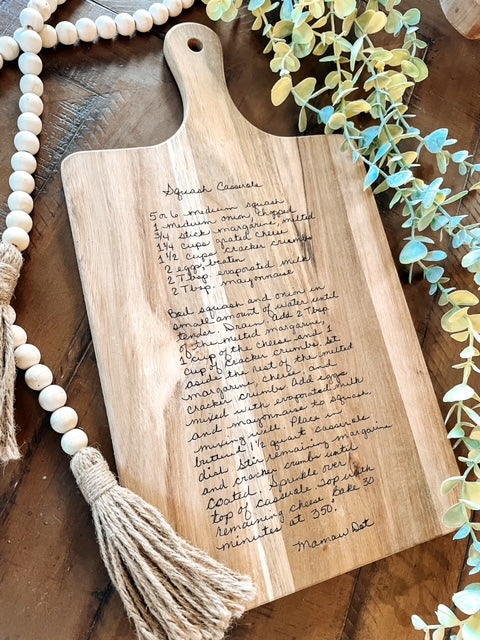 Squash Casserole
5 or 6 medium squash
1 medium onion chopped
3/4 stick margarine, melted
1 1/4 cups grated cheese
1 1/2 cups cracker crumbs
2 eggs, beaten
2 Tbsp. evaporated milk
2 Tbsp. mayonnaise
Boil squash and onion in
small amount of water until
tender. Drain, add 2 Tbsp
of the melted margarine,
1 cup of the cheese and 1
cup of cracker crumbs. Set
aside the rest of the melted
margarine, cheese and
cracker crumbs. Add eggs
mixed with evaporated milk
and mayonnaise to squash
mixing well. Place in
buttered 1 1/2 quart casserole
dish. Stir remaining margarine
and cracker crumbs until
coated. Sprinkle over
top of casserole top with
remaining cheese. Bake 30
minutes at 350°.
Mamaw Dot